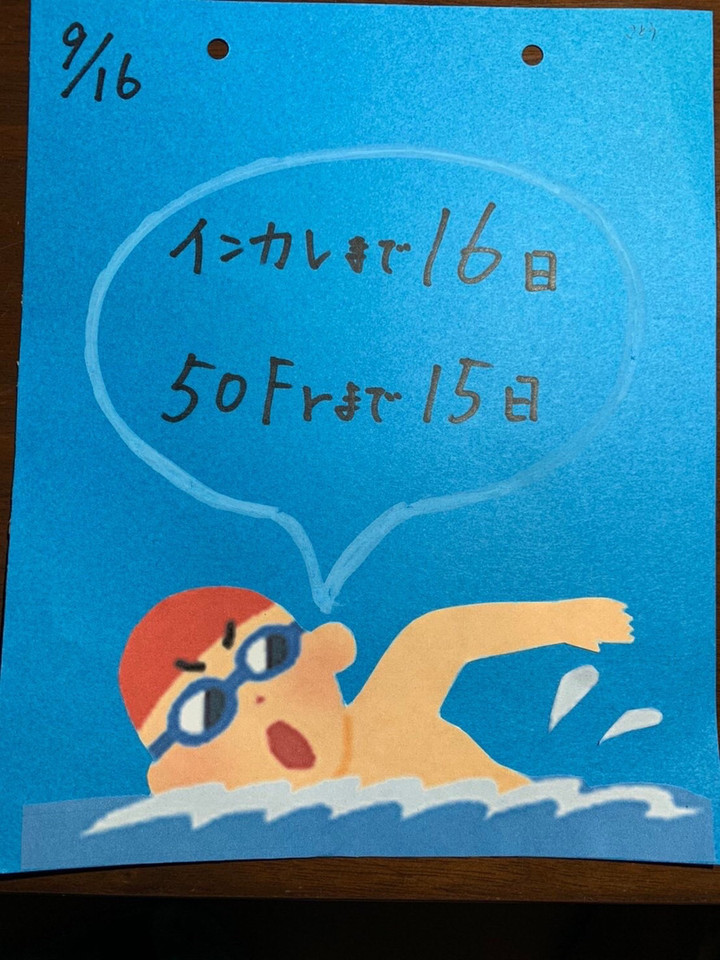 9/16
インカレまで16日
50Frまで15日